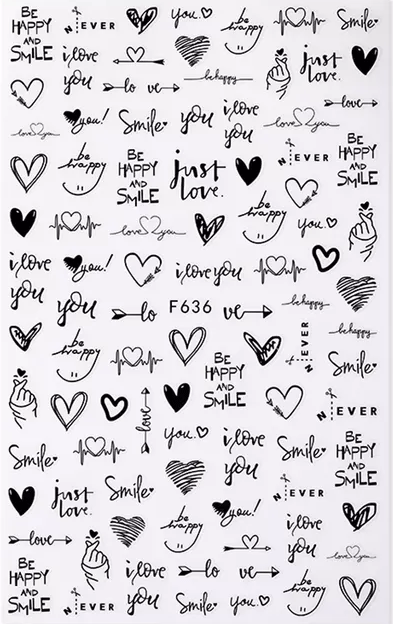 BE
HAPPY
AND
SMILE
NEVER
you.
be
happy
Smile
i love
you
just
love.
lo ve
be happy
love
love you
you!
Smile
you
i love
you
love you
be
happy
BE
HAPPY
AND
SMILE
just
love.
NEVER
BE
HAPPY
AND
SMILE
be
happy
love you
you.
i love
you
you!
i love you
you
lo
F636
ve
be happy
be happy
be
happy
NEVER
BE
HAPPY
AND
SMILE
Smile
love
NEVER
you.
i love
you
Smile
BE
HAPPY
AND
SMILE
Smile
just
love.
Smile
NEVER
you!
be
happy
i love
you
love
love you
BE
HAPPY
AND
SMILE
NEVER
i love
you
lo ve
Smile
you.
be
happy